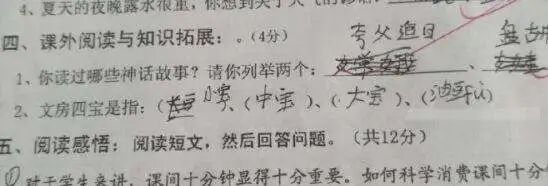 4、夏天的夜晚露水很重，你想到关于天气的
四、课外阅读与知识拓展：。（4分）
夸父追日
1、你读过哪些神话故事？请你列举两个：、
2、文房四宝是指：（小宝、（中宝）、（大宝）、（）
五、阅读感悟：阅读短文，然后回答问题。（共12分）
① 对于学生来讲，课间十分钟显得十分重要。如何科学消费课间十分